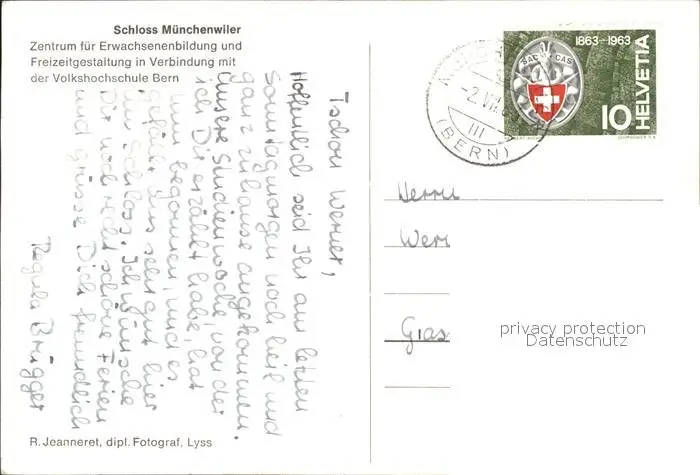 Schloss Münchenwiler
Zentrum für Erwachsenenbildung und
Freizeitgestaltung in Verbindung mit
der Volkshochschule Bern
Tschou Werner,
Hoffentlich seid Ihr am letzten
Sonntagmorgen noch heil und
ganz zuhause angekommen.
Unsere Studienwoche, von der
ich Dir erzählt habe, hat
nun begonnen, und es
gefällt uns sehr gut hier
im Schloss. Ich wünsche
Dir noch recht schöne Ferien
und grüsse Dich freundlich
Regula Brügger
R. Jeanneret, dipl. Fotograf, Lyss
1863-1963
SAC CAS
10
HELVETIA
-2. VII.
III
(BERN)
Herrn
Wer
Glas
privacy protection
Datenschutz